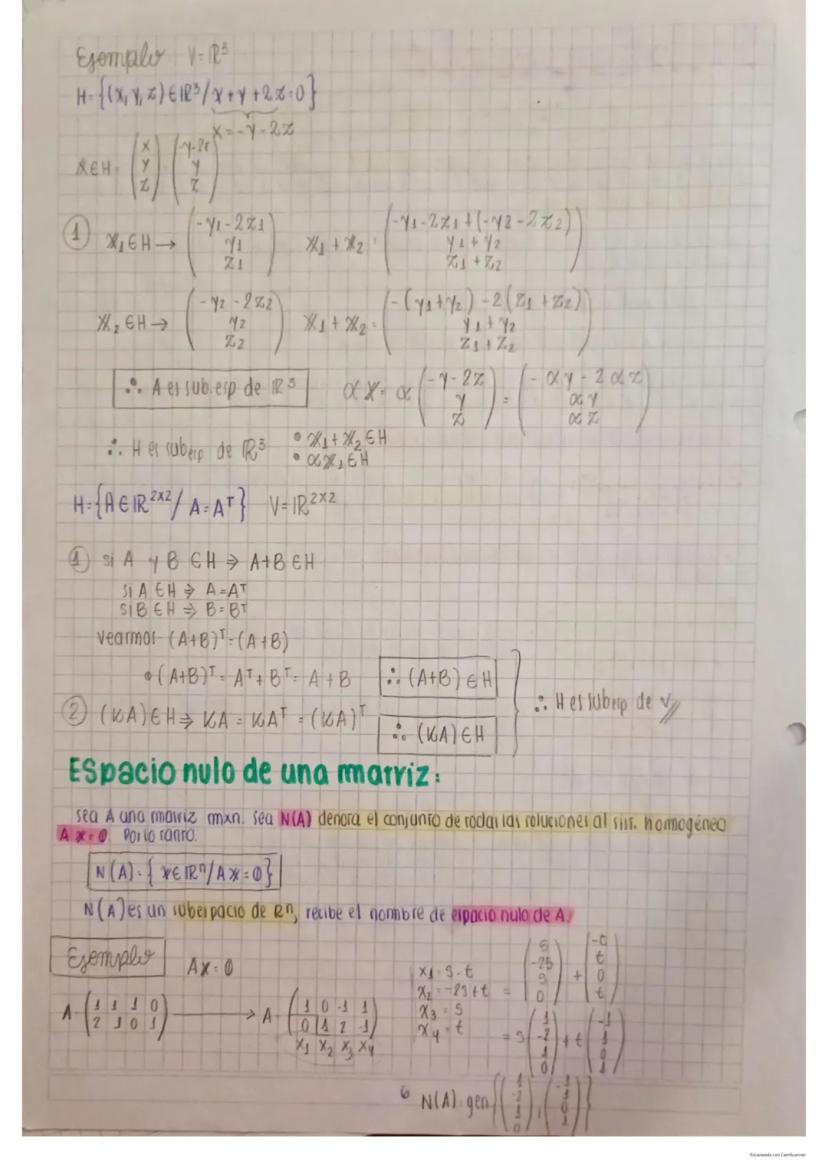 Ejemplo V=ℝ³
H={(x,y,z)∈ℝ³/x+y+2z=0}
x=-y-2z
x∈H= (x y z) (-y-2z y z)
① x₁∈H→ (-y₁-2z₁ y₁ z₁) x₁+x₂= (-y₁-2z₁+(-y₂-2z₂) y₁+y₂ z₁+z₂)
x₂∈H→ (-y₂-2z₂ y₂ z₂) x₁+x₂= (-(y₁+y₂)-2(z₁+z₂) y₁+y₂ z₁+z₂)
∴ A es sub.esp de ℝ³ αx=α (-y-2z y z) = (-αy-2αz αy αz)
∴ H es subesp de ℝ³ • x₁+x₂∈H
• αx₁∈H
H={A∈ℝ²ˣ²/ A=Aᵀ} V=ℝ²ˣ²
① si A y B ∈H ⇒ A+B∈H
si A∈H ⇒ A=Aᵀ
si B∈H ⇒ B=Bᵀ
veamos (A+B)ᵀ=(A+B)
•(A+B)ᵀ=Aᵀ+Bᵀ=A+B ∴ (A+B)∈H
∴ H es subesp de V//
② (kA)∈H⇒ kA = kAᵀ = (kA)ᵀ ∴ (kA)∈H
Espacio nulo de una matriz:
sea A una matriz mxn. sea N(A) denota el conjunto de todas las soluciones al sist. homogéneo
A x=0. Por lo tanto.
N(A)={x∈ℝⁿ/Ax=0}
N(A) es un subespacio de Rⁿ, recibe el nombre de espacio nulo de A/
Ejemplo Ax=0
A=(1 1 1 0 / 2 1 0 1) → A=(1 0 -1 1 / 0 1 2 -1)
x₁ x₂ x₃ x₄
x₁=s-t
x₂=-2s+t = (s -2s s 0) + (-t t 0 t)
x₃=s
x₄=t = s(1 -2 1 0) + t(-1 1 0 1)
N(A)=gen{(1 -2 1 0),(-1 1 0 1)}
Escaneado con CamScanner